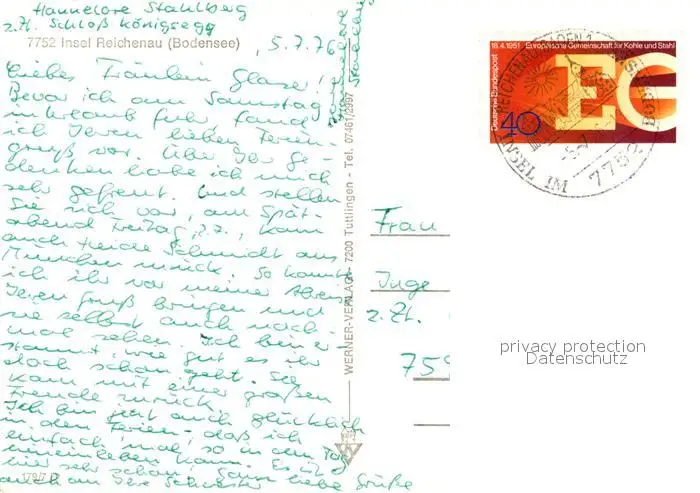 Hannelore Stahlberg
z.Zt. Schloß Königsegg
7752 Insel Reichenau (Bodensee)
5.7.76
Liebes Fräulein Glaser!
Bevor ich am Samstag
in Urlaub fuhr fand
ich Ihren lieben Ferien-
gruß vor. Über Ihr Ge-
denken habe ich mich
sehr gefreut. Und stellen
Sie sich vor, am Spät-
abend Freitag, 2.7., kam
auch Heide Schmidt aus
München zurück. So konnte
ich ihr vor meiner Abreise
Ihren Gruß bringen und
sie selbst auch noch-
mal sehen. Ich bin er-
staunt, wie gut es ihr
doch schon geht. Sie
kam mit einer großen
Freude zurück.
Ich bin jetzt auch glücklich
in den Ferien, daß ich
einfach mal so in den Tag
hineinleben kann. Es ist
hier sehr schön. Ganz
auch an Ihre Schwester liebe Grüße
Ihre Hannelore
Stahlberg
179/7
WERNER-VERLAG - 7200 Tuttlingen - Tel. 07461/2997
18.4.1951 Europäische Gemeinschaft für Kohle und Stahl
Deutsche Bundespost
40
EG
REICHENAU, BADEN 1
INSEL IM
7752
Frau
Inge
z.Zt.
759
privacy protection
Datenschutz